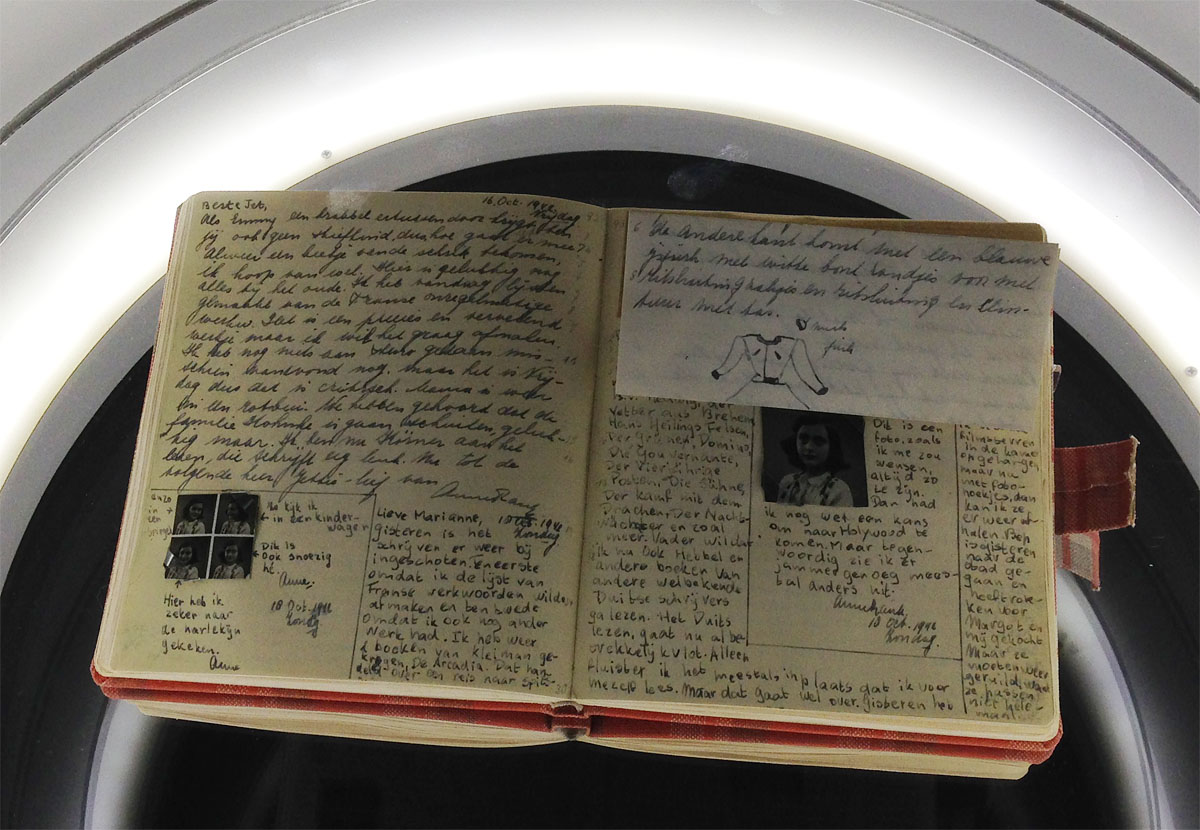 Beste Jet,
16. Oct. 1942
Vrijdag
Als Emmy een krabbel ertussen door krijgt, ben
jij ook geen stiefkind, dus hoe gaat er mee?
Alweer een beetje van de schrik bekomen,
ik hoop van wel. Hier is gelukkig nog
alles bij het oude. Ik heb vandaag lijsten
gemaakt van de Franse onregelmatige
werkw. Het is een precies en vervelend
werkje maar ik wil het graag afmaken.
Ik heb nog niets aan steno gedaan mis-
schien vanavond nog, maar het is Vrij-
dag dus dat is critisch. Mama is weer
in een
We hebben gehoord dat de
familie
is gaan schuilen, geluk-
kig maar. Ik ben nu Körner aan het
lezen, die schrijft erg leuk. Nu tot de
volgende keer
van
Anne Frank
Zo kijk ik
in een kinder-
wagen
Dit is
ook snoezig
hè.
Anne.
Hier heb ik
zeker naar
de narlekijn
gekeken.
Anne
18 Oct. 1942
Zondag
Lieve Marianne,
18 Oct. 1942
Zondag
Gisteren is het
schrijven er weer bij
ingeschoten. Eneerste
omdat ik de lijst van
Franse werkwoorden wilde
afmaken en ten twede
omdat ik ook nog ander
werk had. Ik heb weer
2 boeken van Kleiman ge-
kregen, De Arcadia. Dat han-
deld over een reis naar Spits-
De andere kant komt met een blauwe
met witte bont randjes voor met
Ritssluiting zakjes en ritssluiting en
weer met tas.
muts
Vetter aus Bremen
Hans Heilings Felsen,
Der Grünen Domino,
Die Gouvernante,
Der Vierjährige
Posten, Die Sühne,
Der Kampf mit dem
Drachen, Der Nacht-
wächter en zoal
meer. Vader wil dat
ik nu ook Hebbel en
andere boeken van
andere welbekende
Duitse schrijvers
ga lezen. Het Duits
lezen, gaat nu al be-
trekkelijk vlot. Alleen
fluister ik het meestal inplaats dat ik voor
mezelf lees. Maar dat gaat wel over. Gisteren heb
Dit is een
foto, zoals
ik me zou
wensen,
altijd zo
te zijn.
Dan had
ik nog wel een kans
om naar Holywood te
komen. Maar tegen-
woordig zie ik er
jammer genoeg mees-
tal anders uit.
Anne Frank
18 Oct. 1942
Zondag
filmsterren
in de kamer
opgehangen,
maar nu
met foto-
hoekjes, dan
kan ik ze
er weer af-
halen. Bep
is gisteren
naar de
stad ge-
gaan en
heeft rok-
ken voor
Margot en
mij gekocht
Maar ze
moeten weer
geruild, want
ze passen
niet hele-
maal.